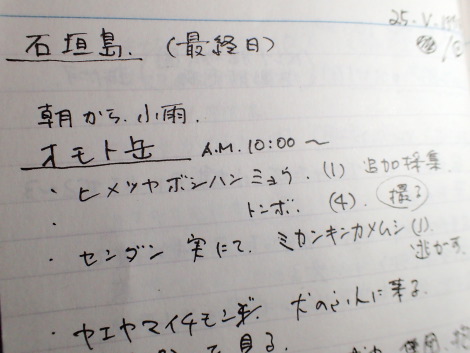 25.V.
石垣島.(最終日)
朝から小雨.
オモト岳 A.M.10:00~
・ヒメツヤボシハンミョウ.(1) 追加採集.
・トンボ.(4). 撮る
・センダン 実にて. ミカンキンカメムシ(1).
逃がす
・ヤエヤマイチモンジ. 犬のふんに来る.
見る